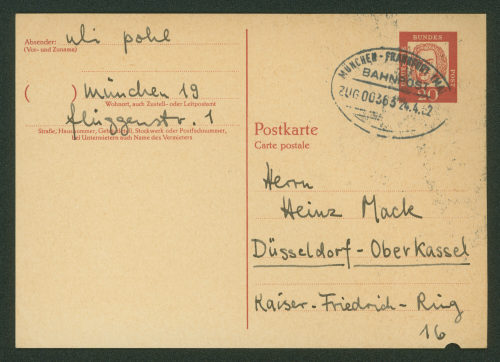 Absender:
(Vor- und Zuname)
uli pohl
( )
münchen 19
Wohnort, auch Zustell- oder Leitpostamt
flüggenstr. 1
Straße, Hausnummer, Gebäudeteil, Stockwerk oder Postfachnummer,
bei Untermietern auch Name des Vermieters
DEUTSCHE
BUNDES
POST
20
MÜNCHEN - FRANKFURT
BAHNPOST
ZUG 00363 24.4.62
Postkarte
Carte postale
Herrn
Heinz Mack
Düsseldorf - Oberkassel
Kaiser - Friedrich - Ring
16